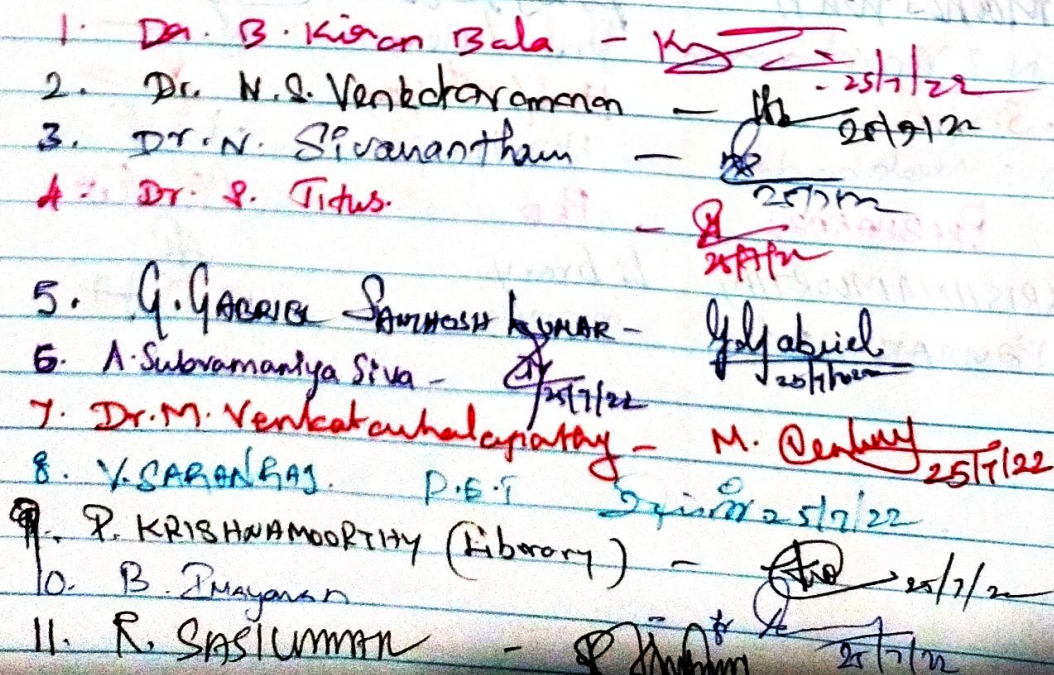 1. Dr. B. Kiran Bala - 25/7/22
2. Dr. N.S. Venkataramanan -
3. Dr. N. Sivanantham - 25/7/22
4. Dr. S. Titus. - 25/7/22
5. G. GABRIEL SANTHOSH KUMAR - G. Gabriel 25/7/2022
6. A. Subramaniya Siva - 25/7/22
7. Dr. M. Venkatachalapathy - M. 25/7/22
8. V. SARANRAJ. P.E.T 25/7/22
9. P. KRISHNAMOORTHY (Library) - 25/7/22
10. B. Imayavan 25/7/22
11. R. SASIKUMAR -